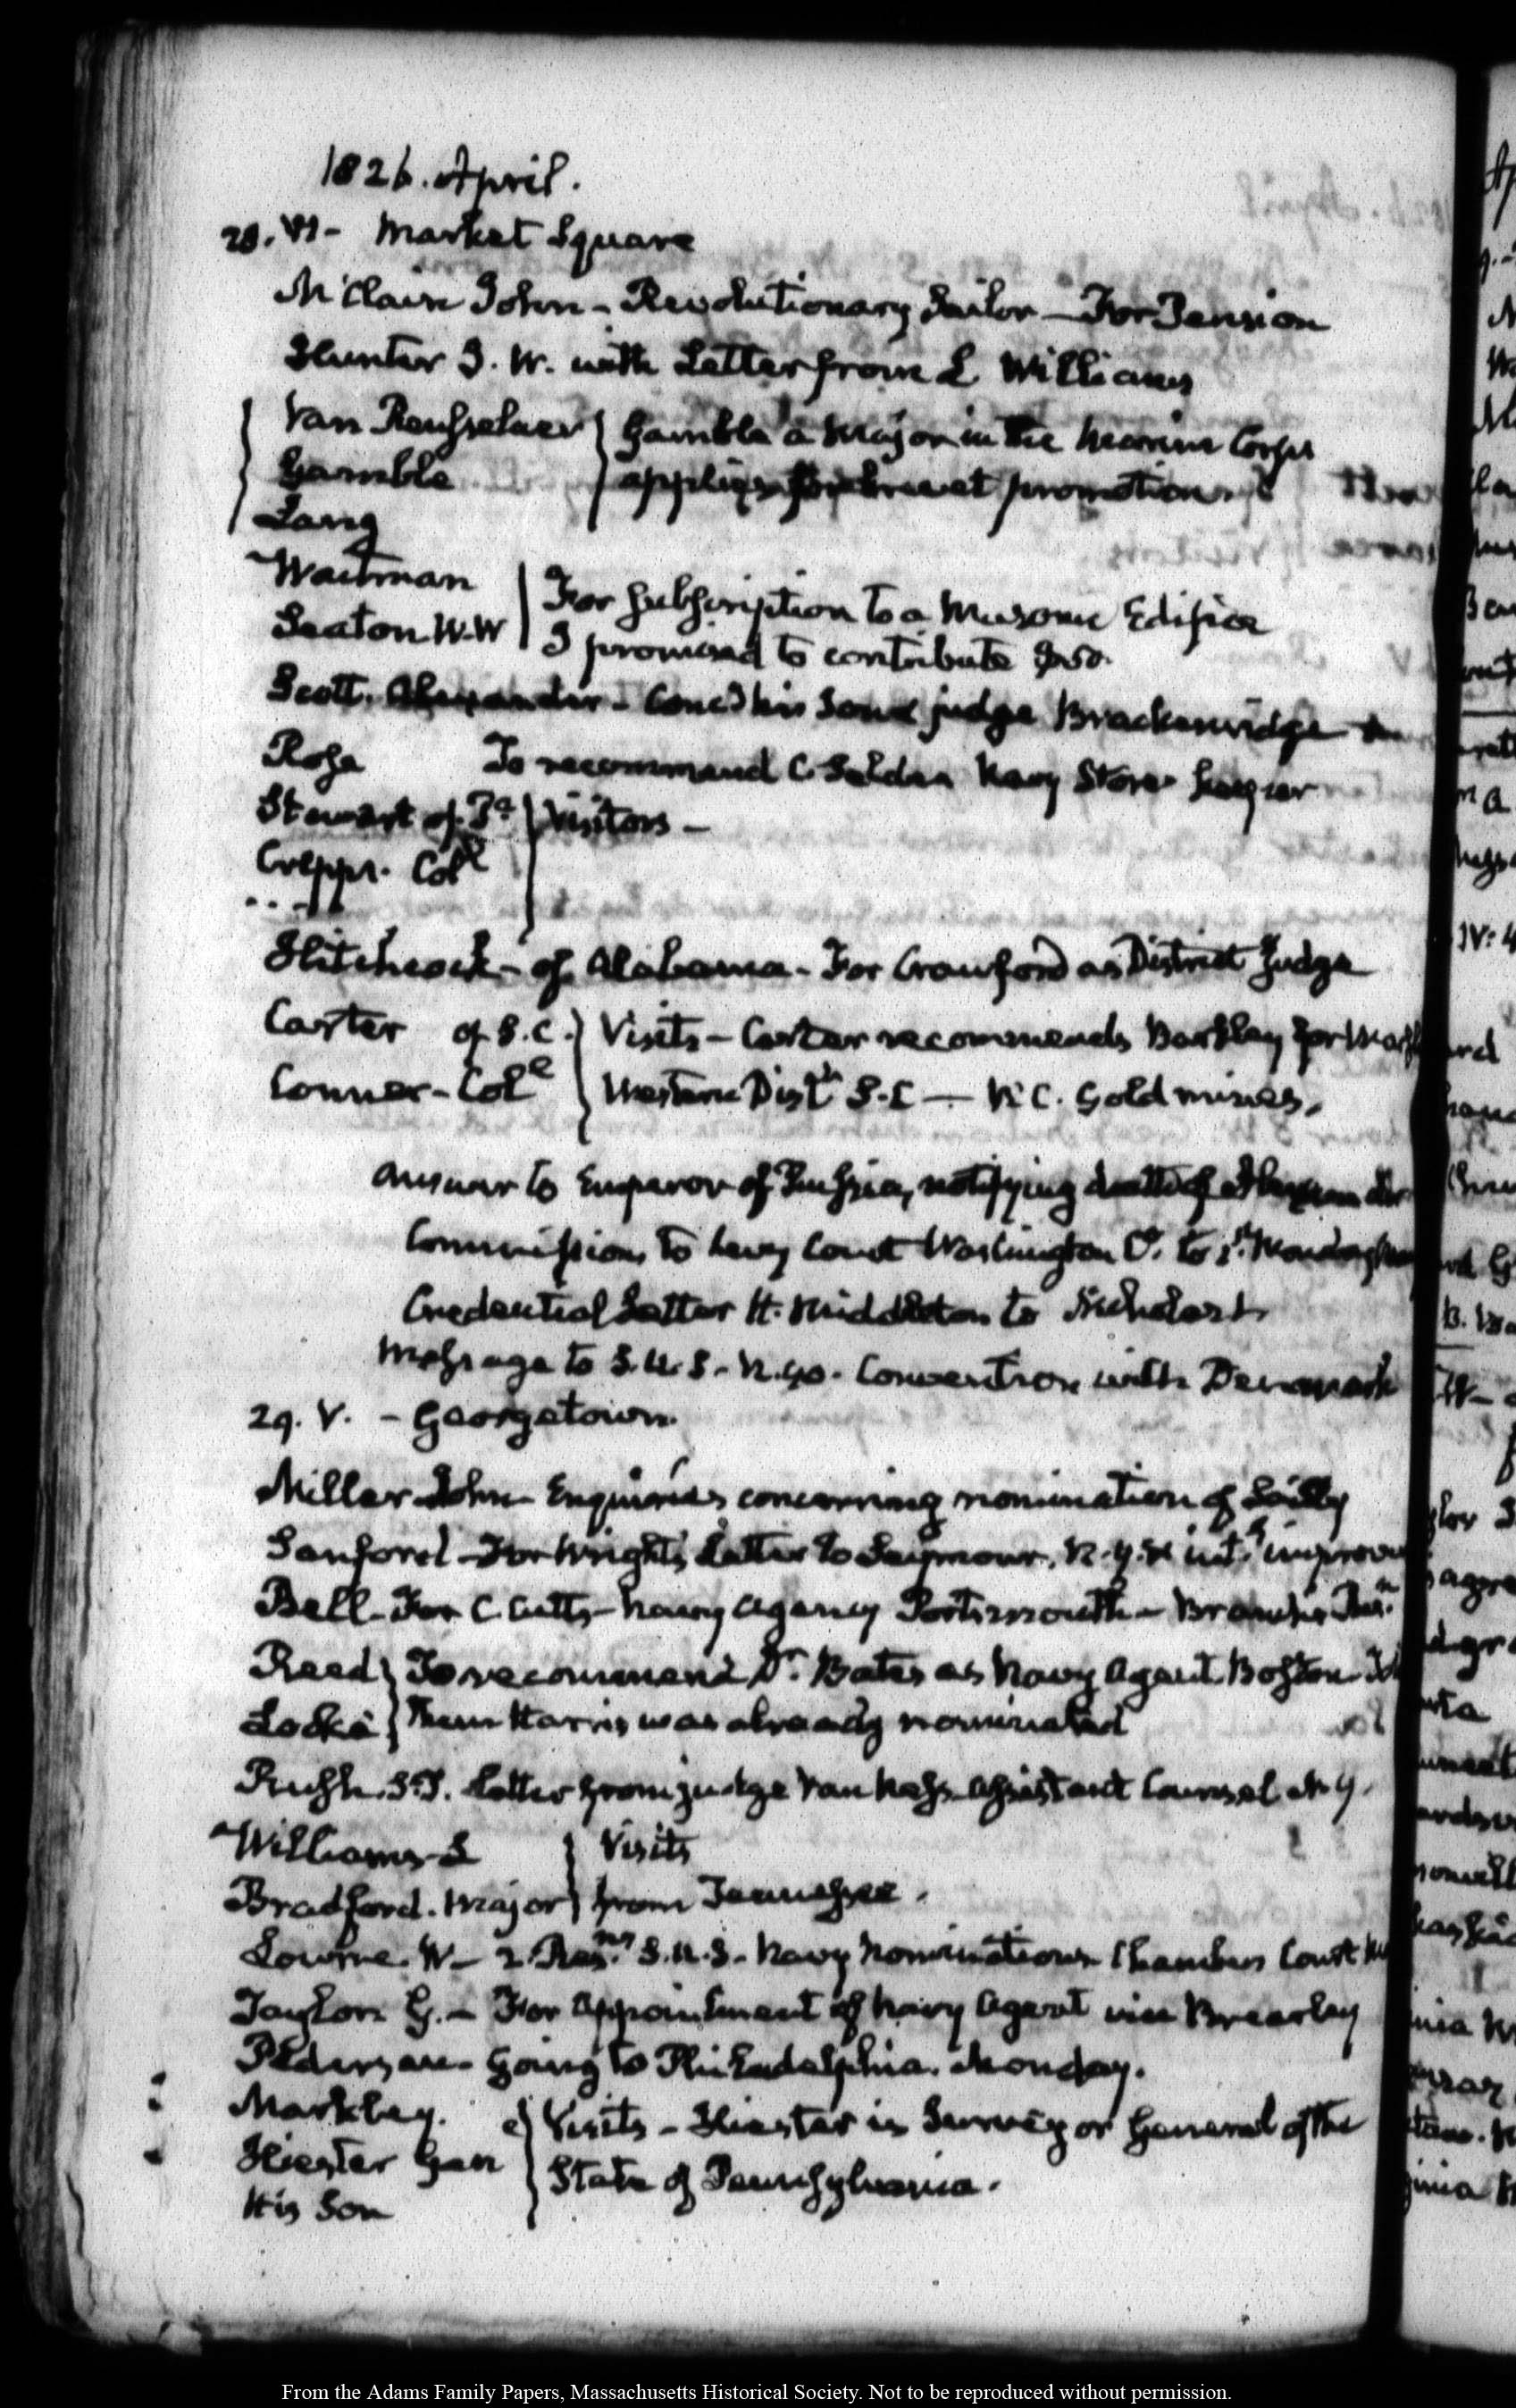 1826. April.
28. VI - Market Square
McClain John - Revolutionary Sailor - For Pension
Hunter J. W. with Letter from L Williams
Van Rensselaer } Gamble a Major in the Marine Corps
Gamble } applies for brevet promotion
Lang
Waterman } For subscription to a Masonic Edifice
Seaton W. W } I promised to contribute $50.
Scott. Alexander - Conc.d his Son & judge Brackenridge
Ross To recommend C. Selden Navy Store keeper
Stewart of Pa } Visitors -
Creppr. Col.l
Hitchcock - of Alabama - For Crawford as District Judge
Carter of S. C. } Visits - Carter recommends Barkley for
Conner - Col.l } Western Dist.t S. C - N. C. Gold mines.
Answer to Emperor of Russia, notifying death of Alexander
Commission to Levy Court Washington C.y to 1.st Monday
Credential Letter H. Middleton to Nicholas 1
Message to S. U. S. - N. 40. Convention with Denmark
29. V. - Georgetown.
Miller John - Enquiries concerning nomination of
Sanford - For Wright's Letter to Seymour. N. Y. & int.l improve
Bell - For C. Cutts - Navy agency Portsmouth -
Reed } To recommend Dr. Bates as Navy Agent Boston
Locke } them Harris was already nominated
Rush. S. J. Letter from judge Van Ness. Assistant Counsel N. Y.
Williams - L } Visits
Bradford. Major } from Tennessee.
Lowrie. W - 2. Res.ns S. U. S - Navy Nominations Chambers Court
Taylor. G. - For Appointment of Navy Agent vice Brearley
Pedersen - Going to Philadelphia. Monday.
Markley. } Visits - Hiester is Surveyor General of the
Hiester Gen } State of Pennsylvania.
His Son
From the Adams Family Papers, Massachusetts Historical Society. Not to be reproduced without permission.